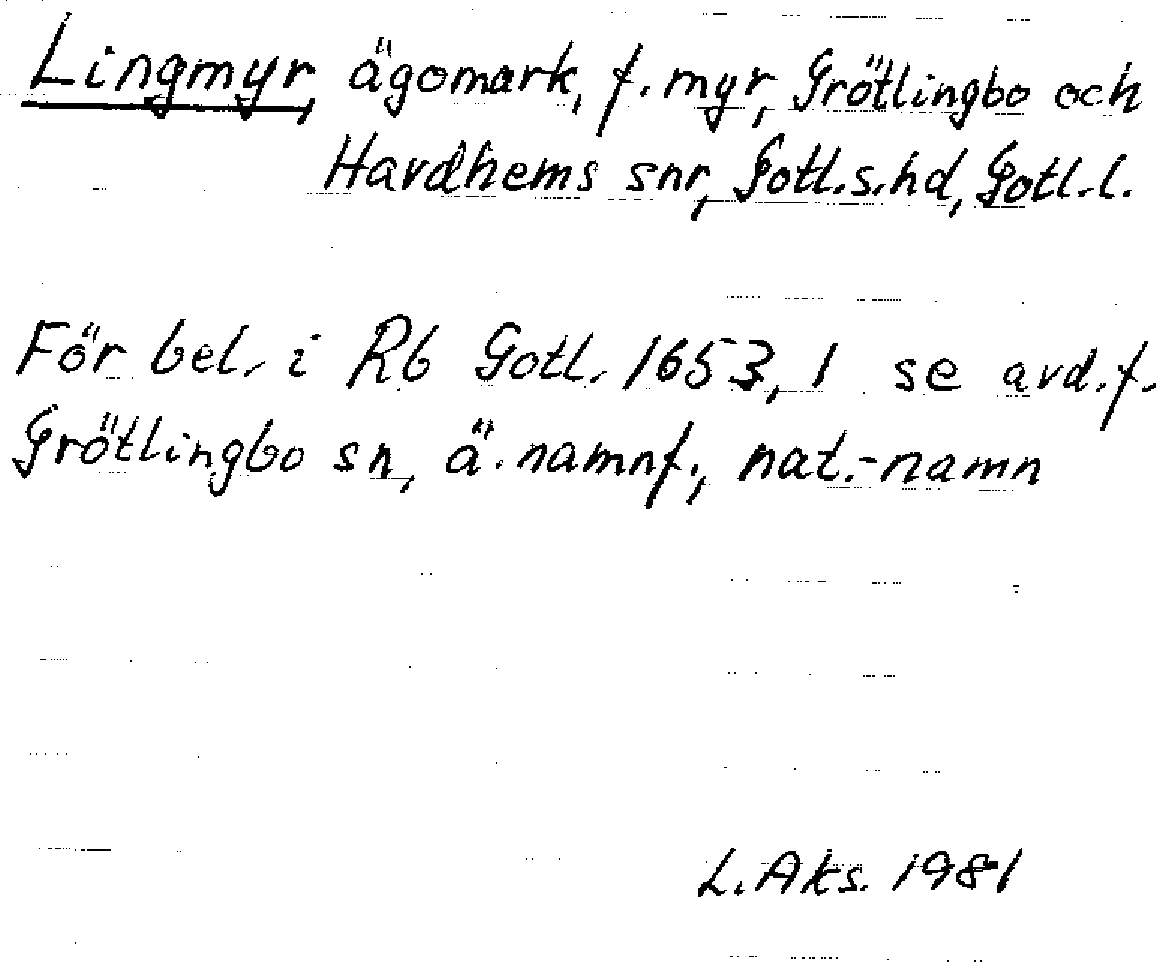 Lingmyr, ägomark, f. myr, Grötlingbo och
Havdhems snr, Gotl.s.hd, Gotl.l.
För bel. i Rb Gotl. 1653, 1 se avd.f.
Grötlingbo sn, ä. namnf., nat.-namn
L. Aks. 1981